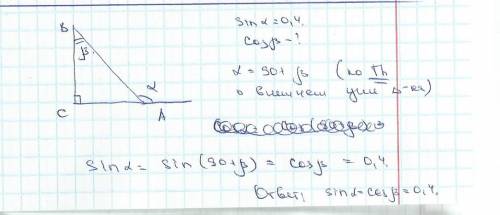 B
β
α
C
A
sinα=0,4.
cosβ-?
α = 90+ β (по Th
о внешнем угле Δ-ка)
sinα = sin(90+β) = cosβ = 0,4.
Ответ: sinα=cosβ=0,4.